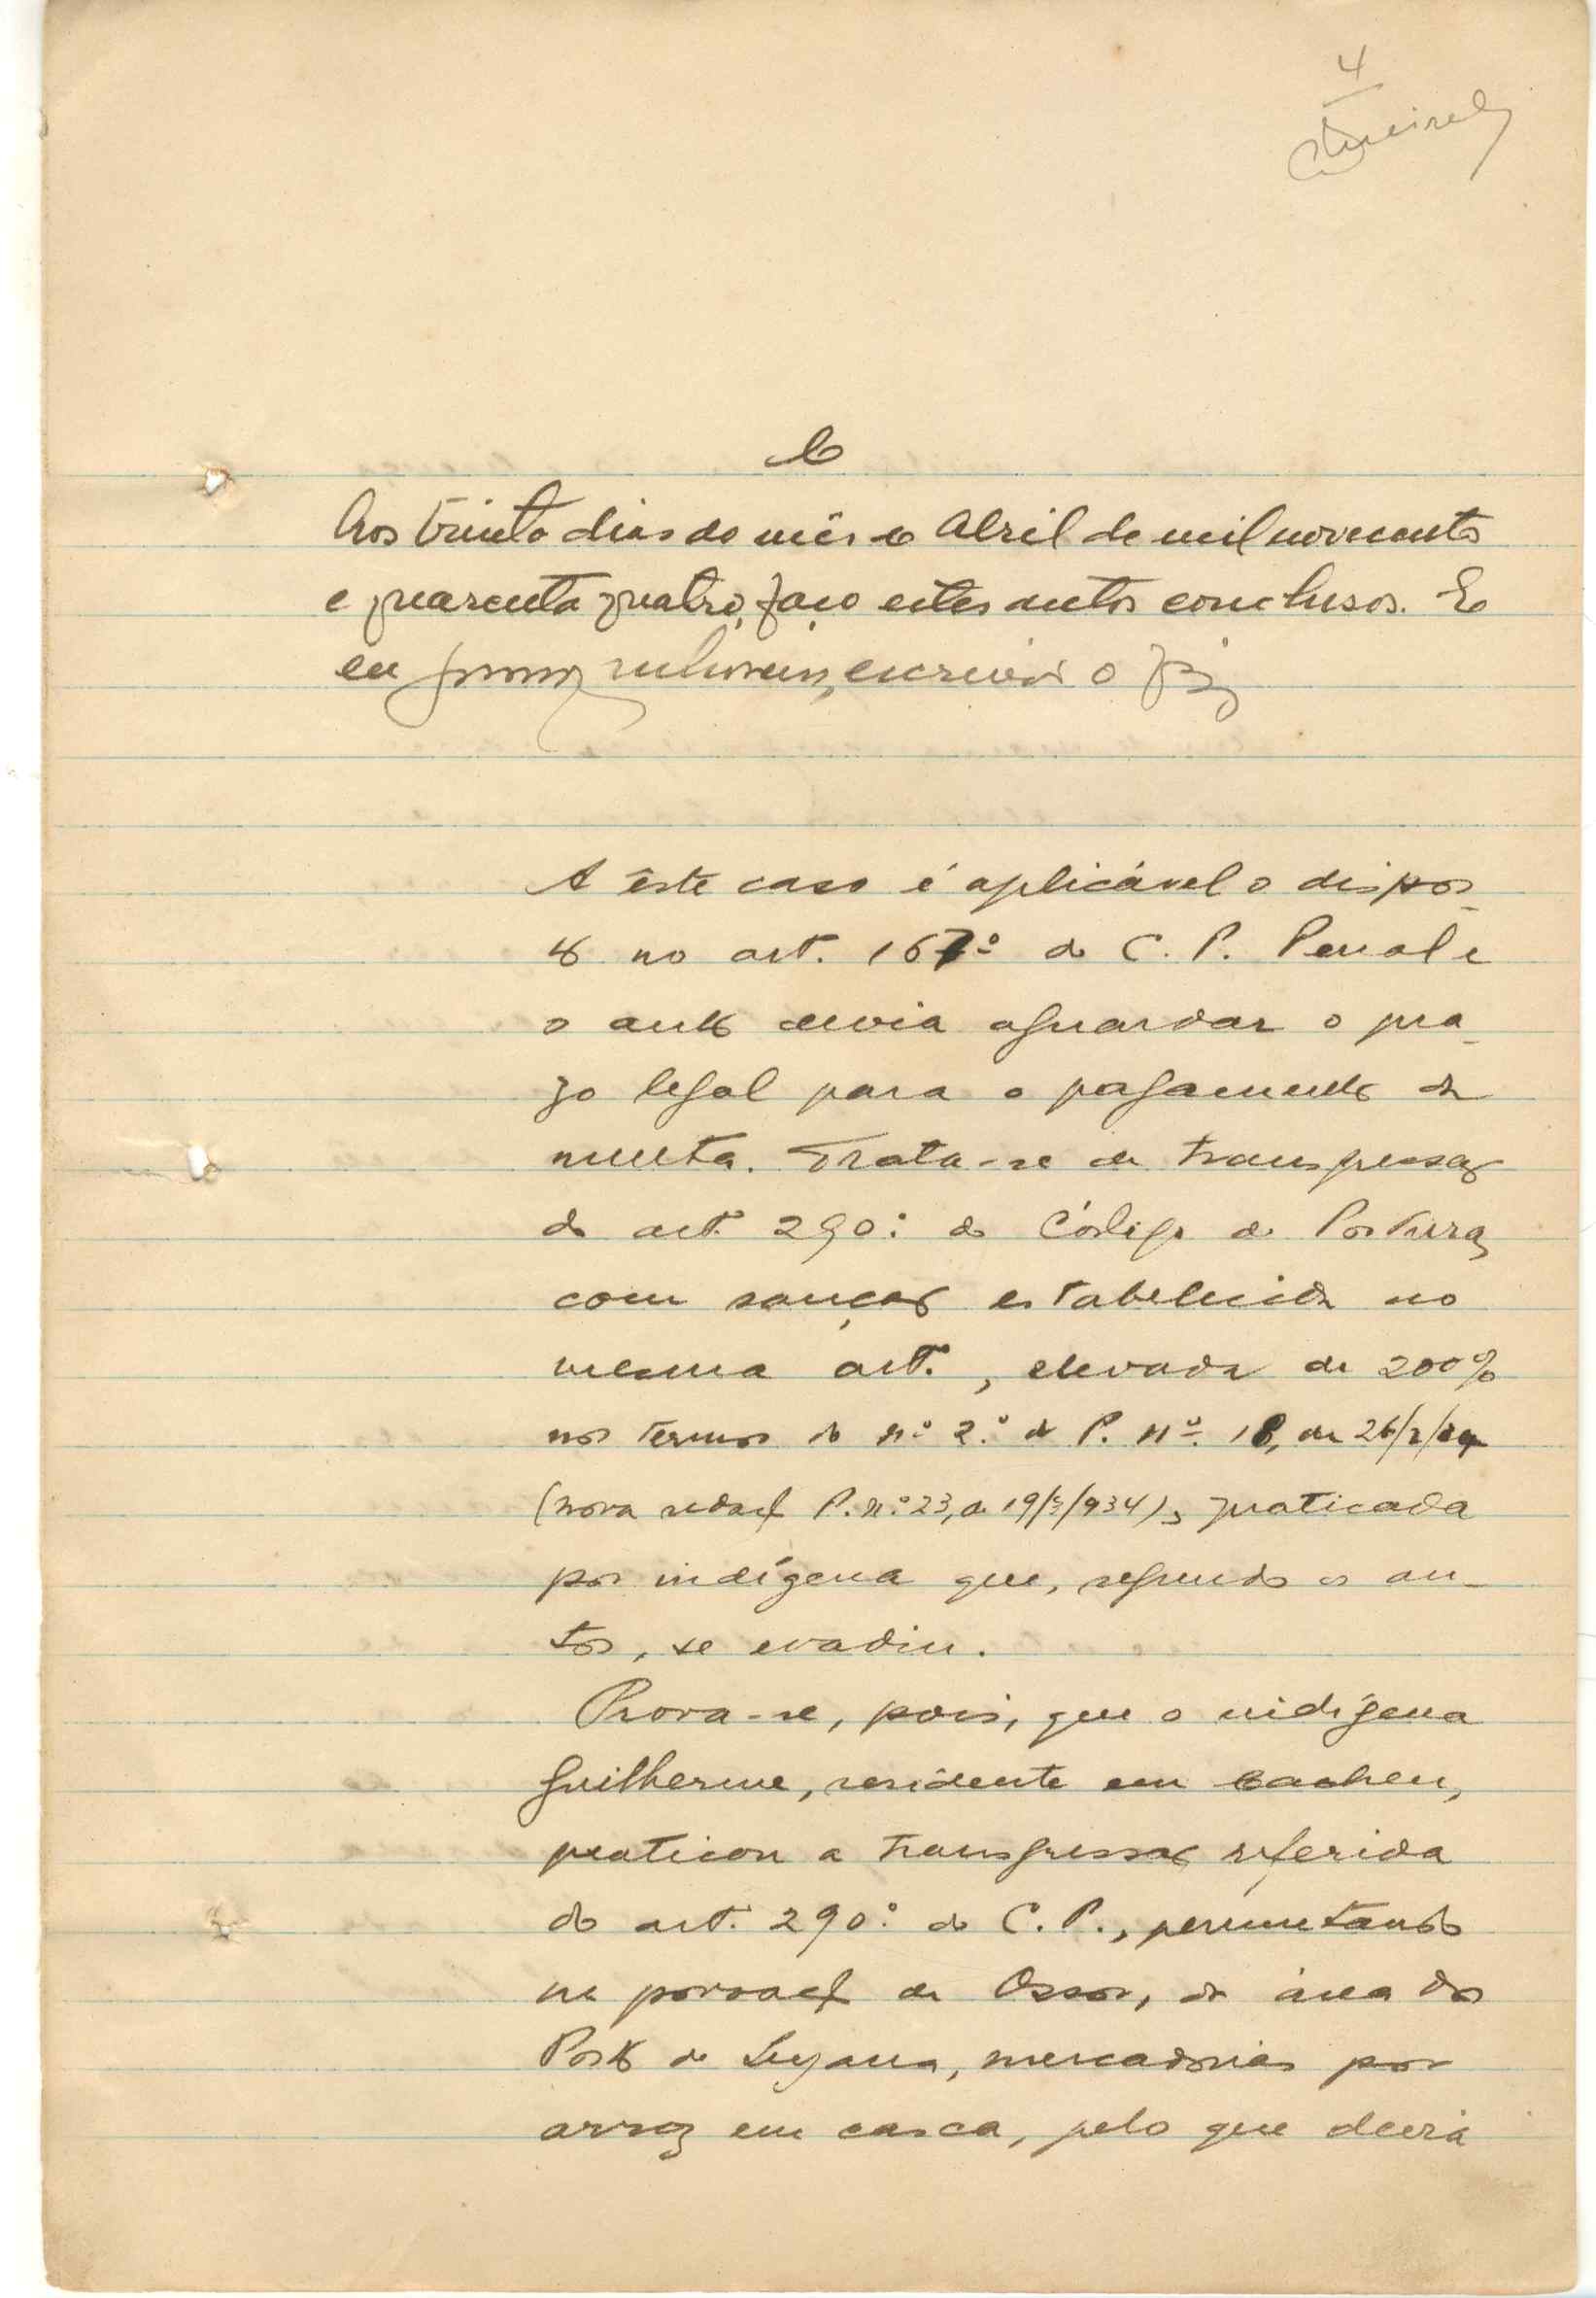 4
C
Aos trinta dias do mês de Abril de mil novecentos
e quarenta quatro, faço estes autos conclusos. E
eu escrivão o fiz
A êste caso é aplicável o dispos-
to no art. 167º do C. P. Penal e
o auto devia aguardar o pra-
zo legal para o pagamento da
multa. Trata-se de transgressão
do art. 290.º do Código de Posturas
com sanção estabelecida no
mesmo art.º, elevada de 200%
nos termos do n.º 2.º da P. nº. 18, de 26/2/34
(nova redaç. P. n.º 23, de 19/3/934), praticada
por indígena que, segundo os au-
tos, se evadiu.
Prova-se, pois, que o indígena
Guilherme, residente em Cacheu,
praticou a transgressão referida
do art. 290.º do C. P., permutando
na povoaç. de Ossor, da área do
Posto de Suzana, mercadorias por
arroz em casca, pelo que devia